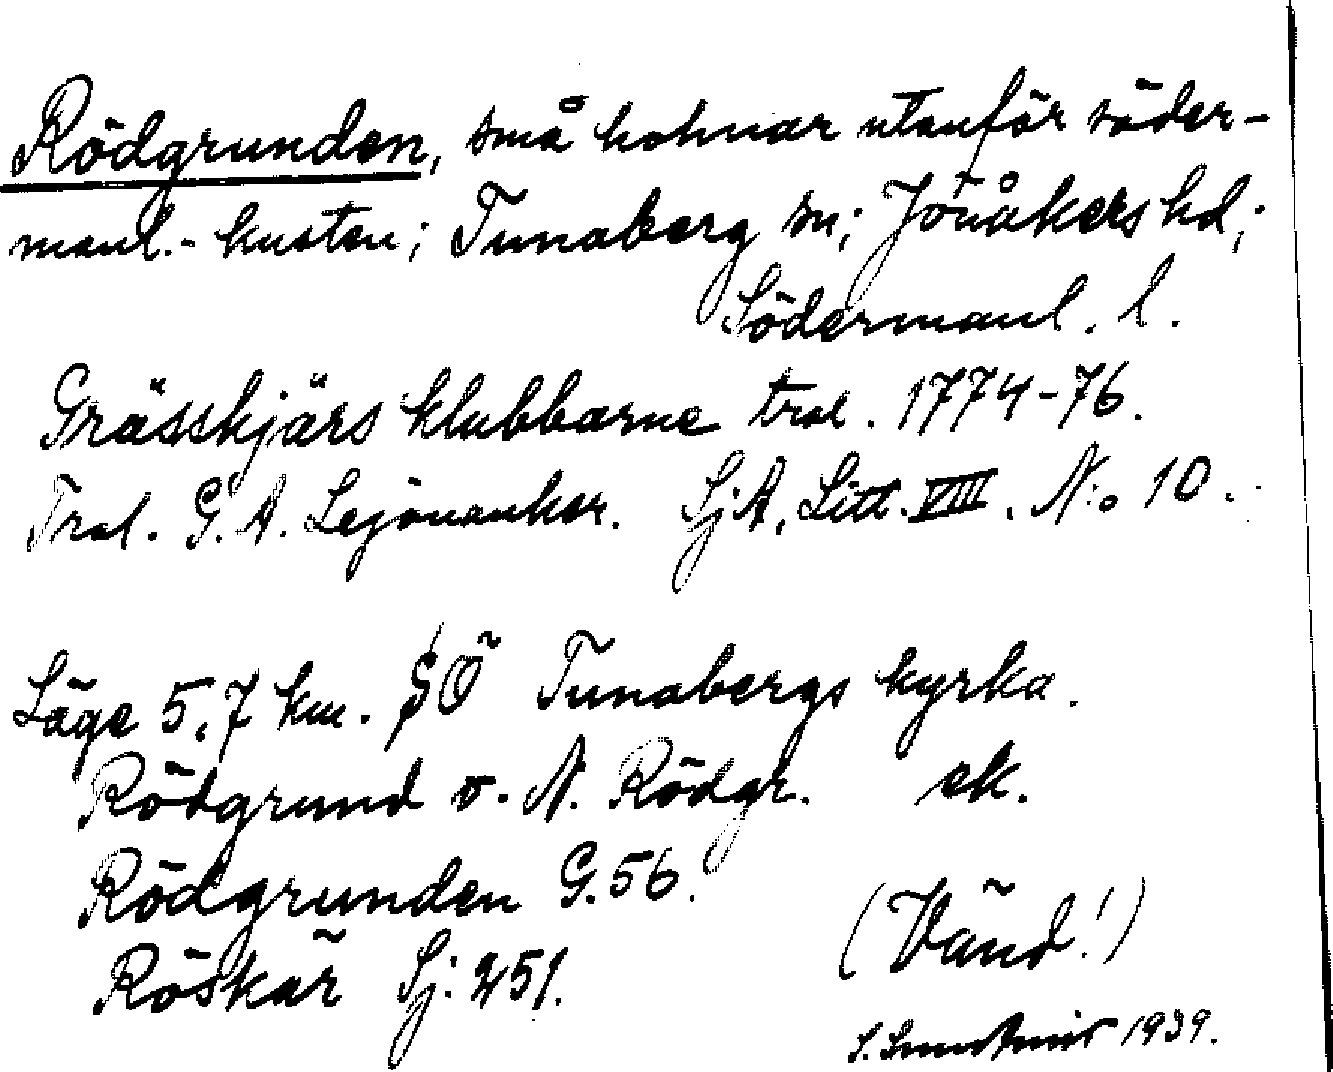 Rödgrunden, små holmar utanför söder-
manl.-kusten; Tunaberg sn; Jönåkers hd;
Södermanl. l.
Grässkjärs klubbarne trol. 1774-76.
Trol. G. A. Lejonanker. Sj A, Litt. VIII. N:o 10.
Läge 5,7 km. SÖ Tunabergs kyrka.
Rödgrund o. N. Rödgr. ek.
Rödgrunden G. 56.
Röskär Sj: 251.
(Vänd!)
S. 1939.